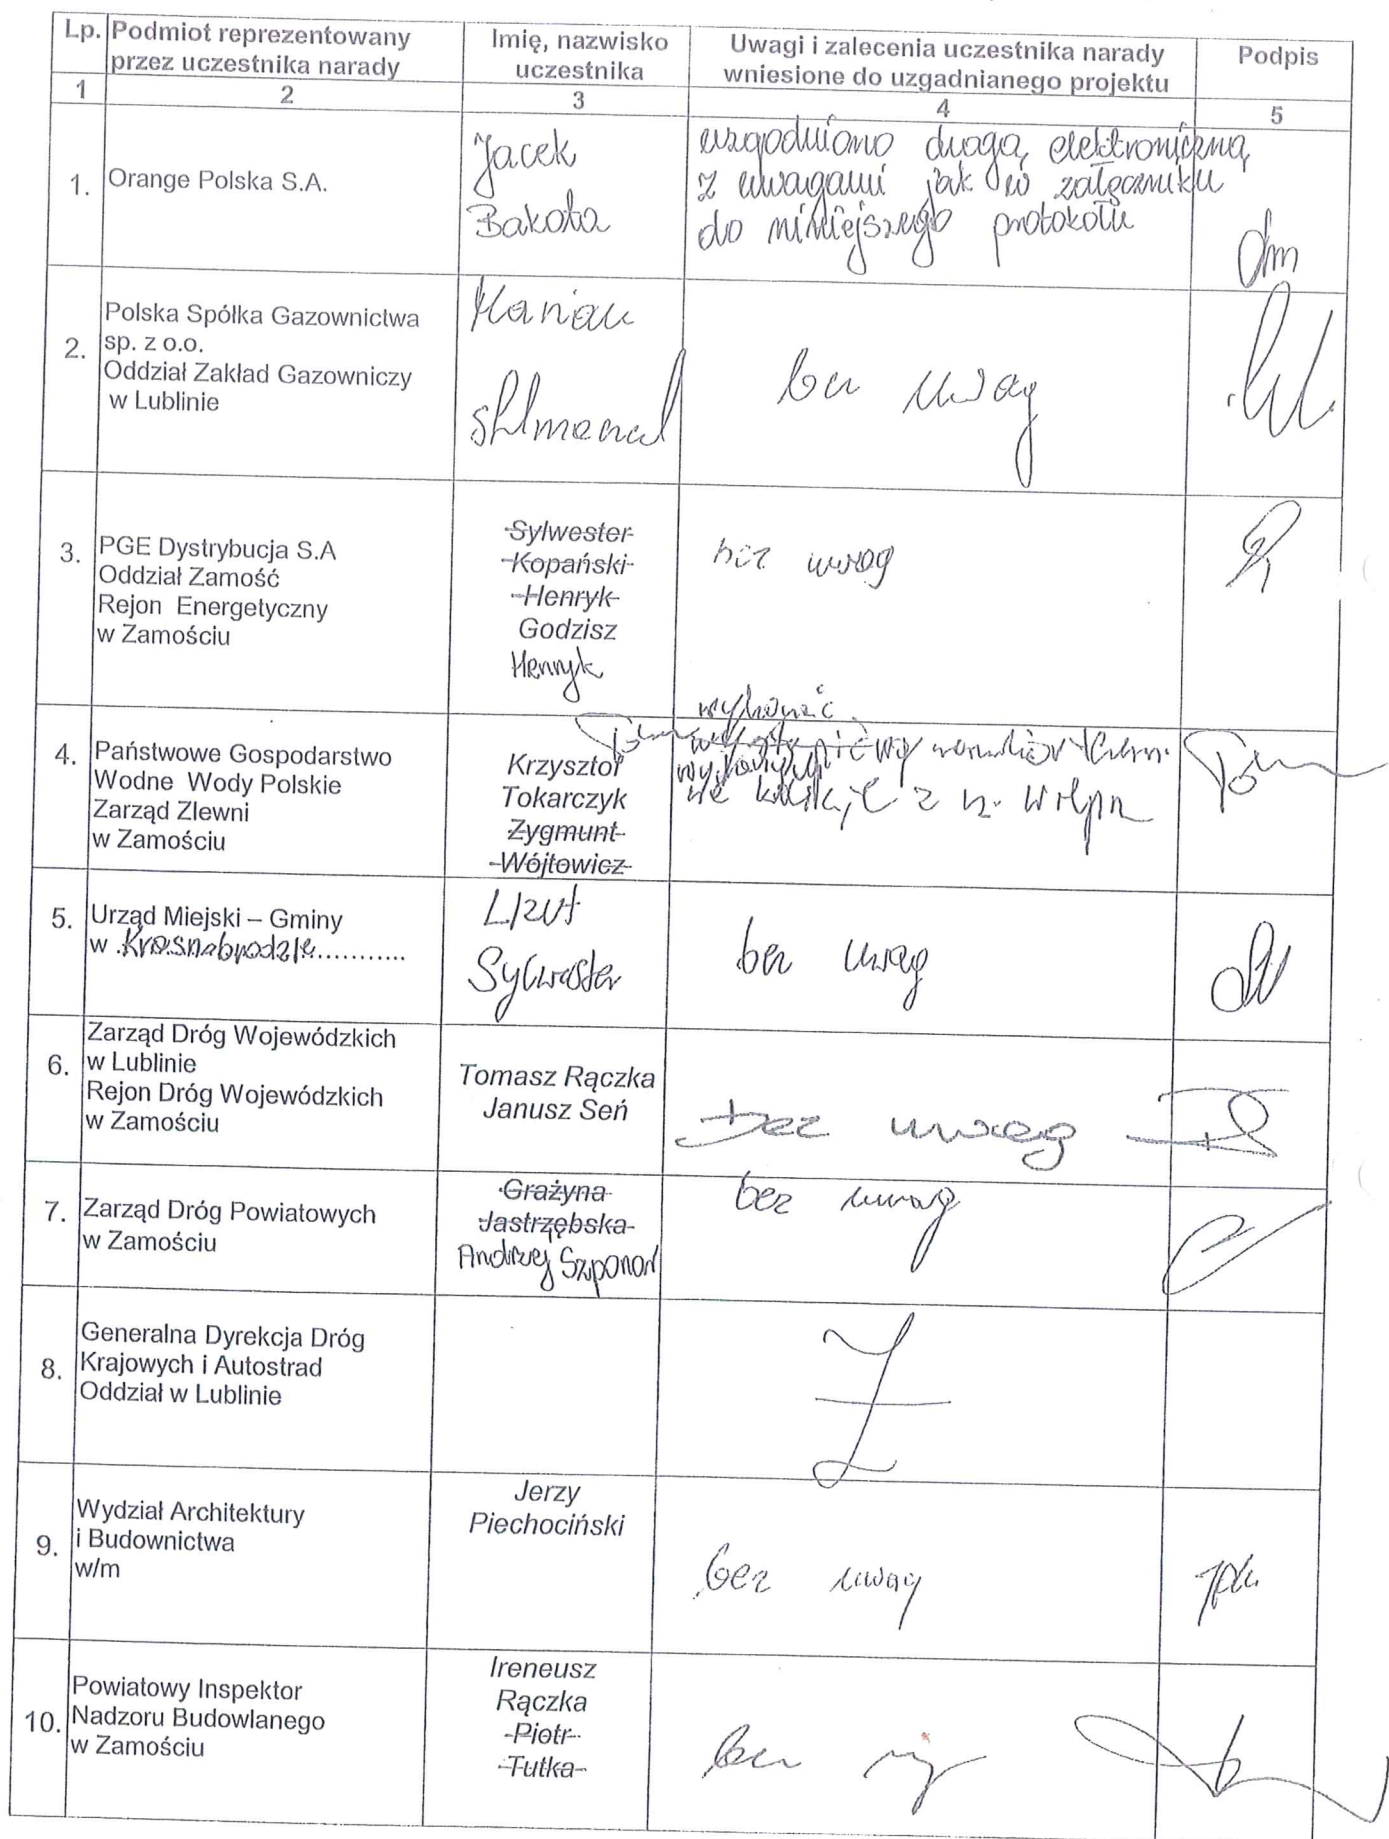 Lp. Podmiot reprezentowany przez uczestnika narady
Imię, nazwisko uczestnika
Uwagi i zalecenia uczestnika narady wniesione do uzgadnianego projektu
Podpis
1 2 3 4 5
1. Orange Polska S.A.
Jacek
Bakota
uzgodniono drogą elektroniczną
z uwagami jak w załączniku
do niniejszego protokołu
2. Polska Spółka Gazownictwa
sp. z o.o.
Oddział Zakład Gazowniczy
w Lublinie
bez uwag
3. PGE Dystrybucja S.A
Oddział Zamość
Rejon Energetyczny
w Zamościu
Sylwester
Kopański
Henryk
Godzisz
Henryk
bez uwag
4. Państwowe Gospodarstwo
Wodne Wody Polskie
Zarząd Zlewni
w Zamościu
Krzysztof
Tokarczyk
Zygmunt
Wójtowicz
5. Urząd Miejski – Gminy
w .Krasnobrodzie...........
Lizut
Sylwester
bez uwag
6. Zarząd Dróg Wojewódzkich
w Lublinie
Rejon Dróg Wojewódzkich
w Zamościu
Tomasz Rączka
Janusz Seń
bez uwag
7. Zarząd Dróg Powiatowych
w Zamościu
Grażyna
Jastrzębska
Andrzej Szponar
bez uwag
8. Generalna Dyrekcja Dróg
Krajowych i Autostrad
Oddział w Lublinie
9. Wydział Architektury
i Budownictwa
w/m
Jerzy
Piechociński
bez uwag
10. Powiatowy Inspektor
Nadzoru Budowlanego
w Zamościu
Ireneusz
Rączka
Piotr
Tutka
bez